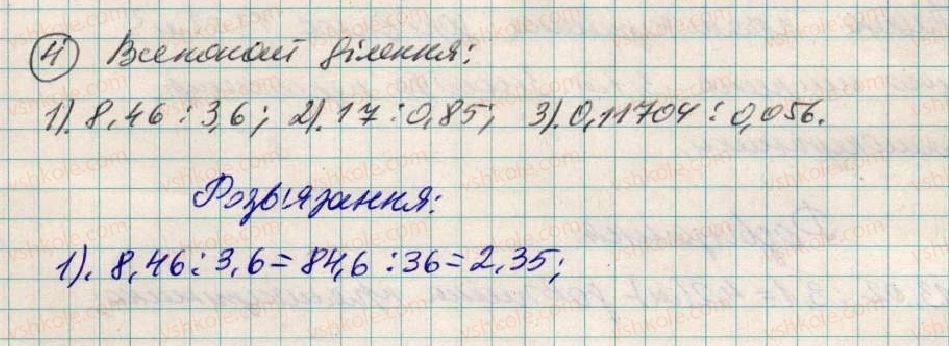 4 Виконай ділення:
1). 8,46 : 3,6; 2). 17 : 0,85; 3). 0,11704 : 0,056.
Розв'язання:
1). 8,46 : 3,6 = 84,6 : 36 = 2,35;